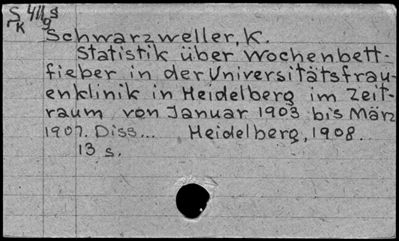 Schwarzweller, K.
Statistik über Wochenbett-
fieber in der Universitätsfrau-
enklinik in Heidelberg im Zeit-
raum von Januar 1903 bis März
1907. Diss... Heidelberg, 1908.
13 s.